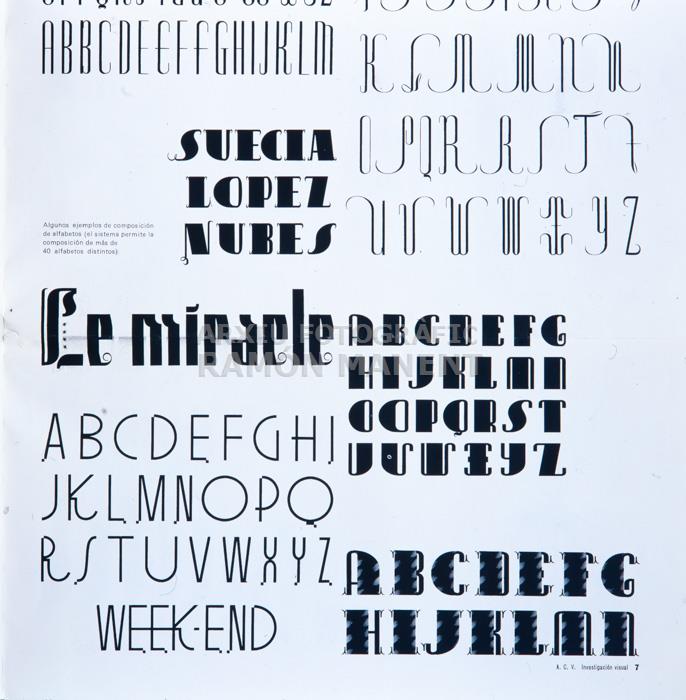 ABBCDEEFFGHIJKLM
K L M M N N
O P Q R R S T T
U U V W W X Y Z
SUECIA
LOPEZ
NUBES
Algunos ejemplos de composición
de alfabetos (el sistema permite la
composición de más de
40 alfabetos distintos)
Le miracle
ARXIU FOTOGRÀFIC
RAMÓN MANENT
ABCDEFG
HIJKLMN
OOPQRST
UUVWXYZ
ABCDEFGHI
JKLMNOPQ
RSTUVWXYZ
WEEK-END
ABCDEFG
HIJKLMN
A. C. V. Investigación visual 7